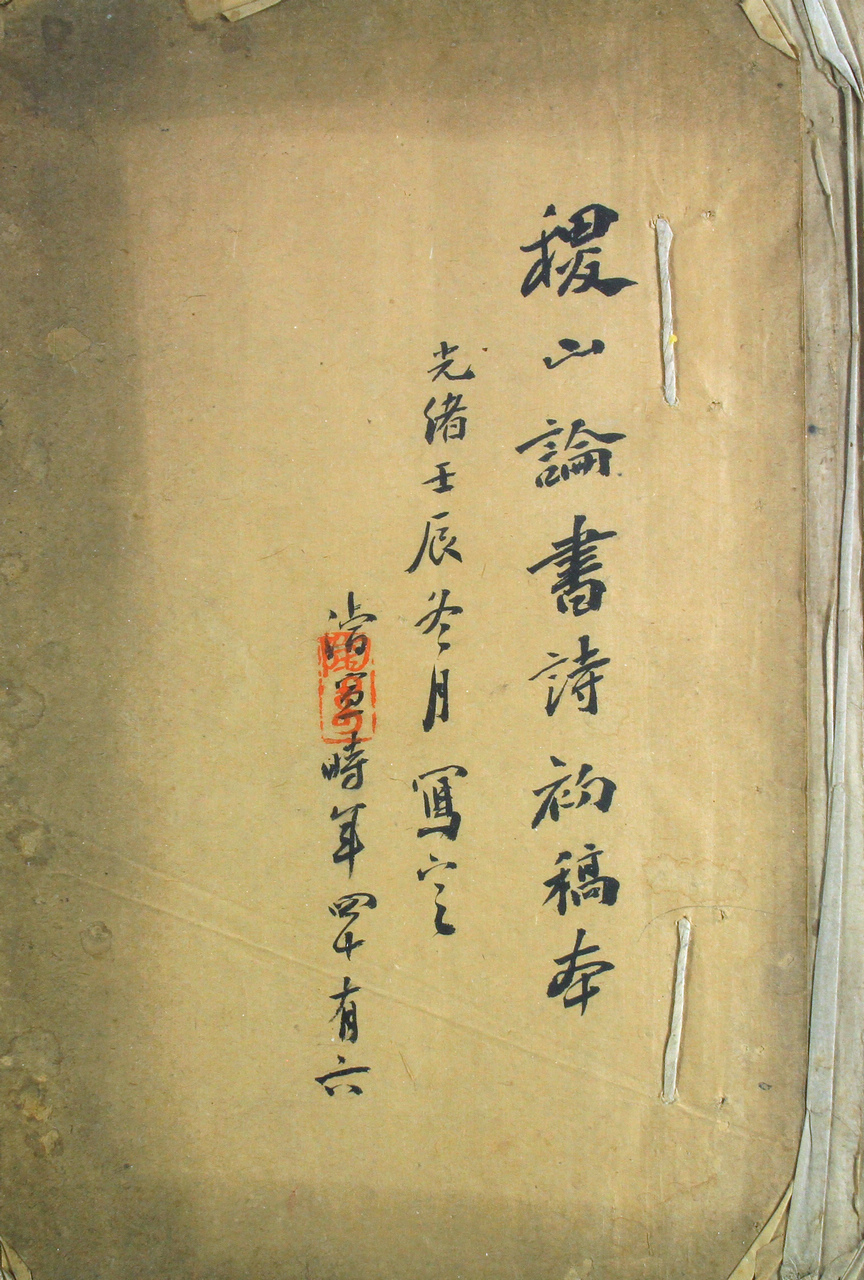 稷山論書詩初稿本
光緒壬辰冬月寫定
濬宣時年四十有六